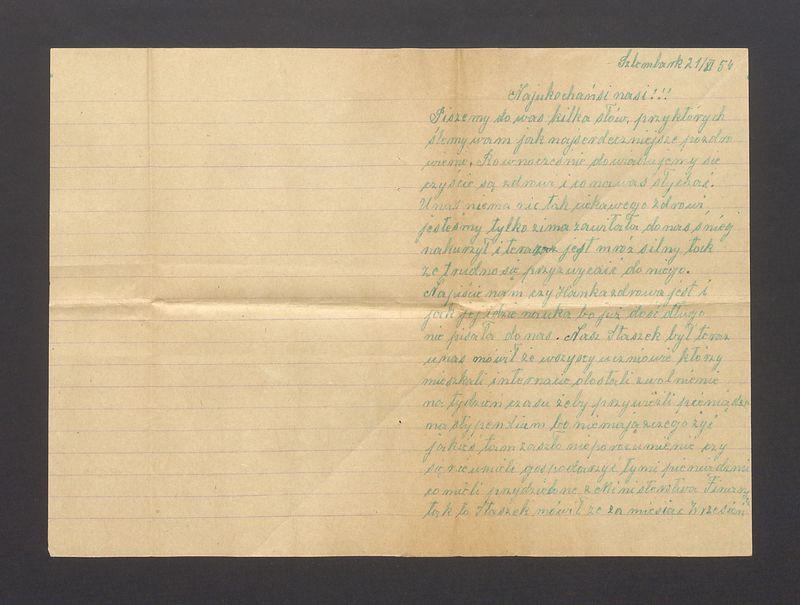 Sztembark 21/XI 54
Najukochańsi nasi!!!
Piszemy do was kilka słów, przy których
ślemy wam jak najserdeczniejsze pozdro
wienie. Równocześnie dowiadujemy się
czyście są zdrowi i co na was słychać.
U nas niema nic tak ciekawego zdrowi
jesteśmy tylko zima zawitała do nas śnieg
nakurzył i teraz jest mróz silny tak
że trudno się przyzwycaić do niego.
Napiście nam czy Hanka zdrowa jest i
jak jej idzie nauka bo już dość długo
nie pisała do nas. Nasz Staszek był teraz
u nas mówił że wszyscy uczniowie którzy
mieszkali internacie dostali zwolnienie
na tydzień czasu żeby przywieźli pieniądze
na stypendium bo nie mają z czego żyć
jakieś tam zaszło nieporozumienie czy
się nie umieli gospodarzyć tymi pieniądzmi
co mieli przydzielone z Ministerstwa Finansy
tak to Staszek mówił że za miesiąc Wrzesień